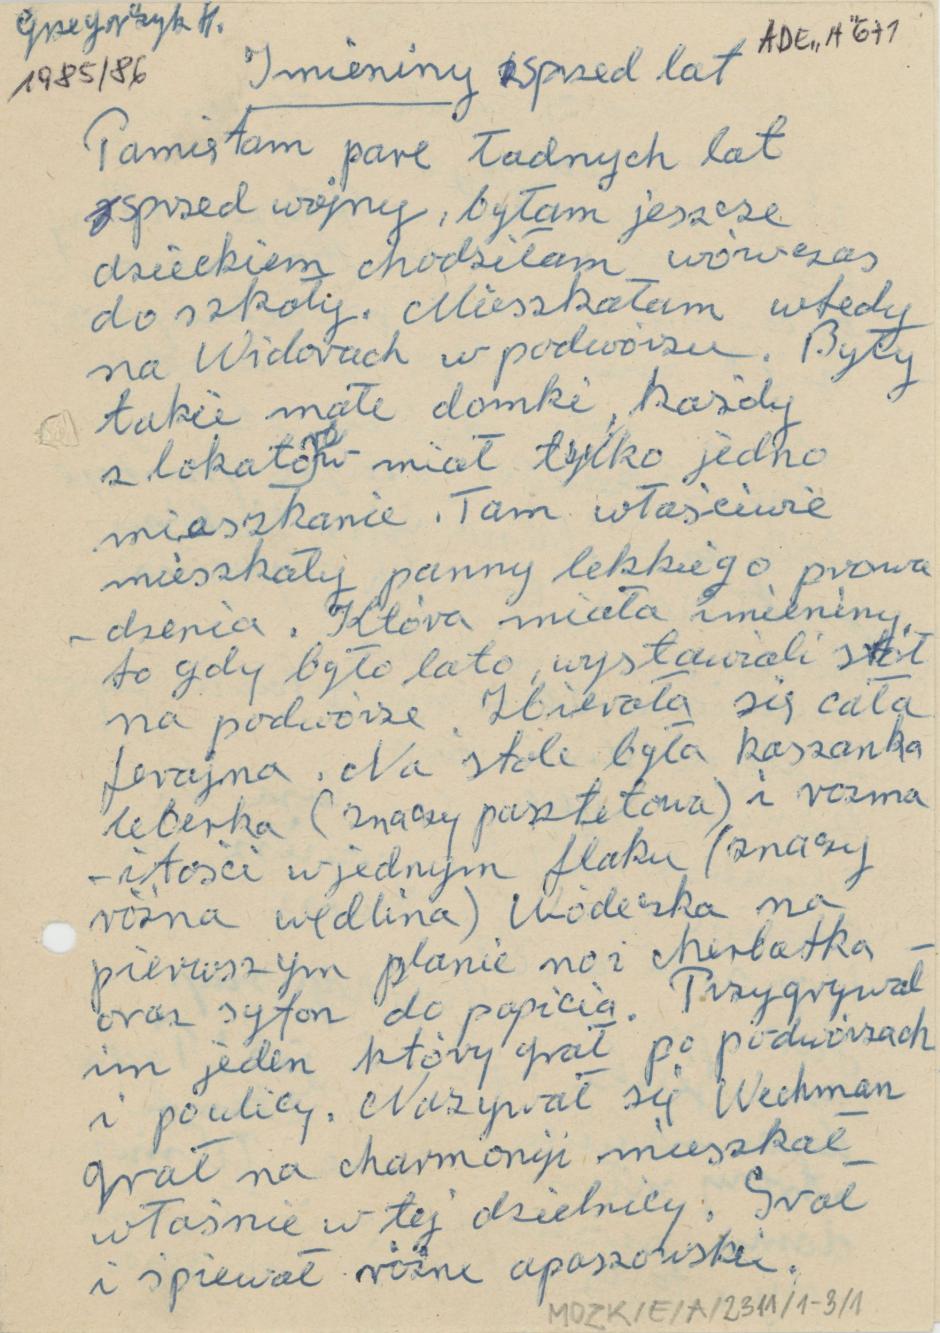 Grzegorczyk H.
1985/86
ADE„A" 671
Imieniny sprzed lat
Pamiętam parę ładnych lat
sprzed wojny, byłam jeszcze
dzieckiem chodziłam wówczas
do szkoły. Mieszkałam wtedy
na Widorach w podwórzu. Były
takie małe domki, każdy
z lokatorów miał tylko jedno
mieszkanie. Tam właściwie
mieszkały panny lekkiego prowa
-dzenia. Która miała imieniny,
to gdy było lato, wystawiali stół
na podwórze. Zbierała się cała
ferajna. Na stole była kaszanka
leberka (znaczy pasztetowa) i rozma
-itości w jednym flaku (znaczy
różna wędlina) Wódeczka na
pierwszym planie no i cherbatka -
oraz syfon do popicia. Przygrywał
im jeden który grał po podwórzach
i poulicy. Nazywał się Wechman
grał na charmonji mieszkał
właśnie w tej dzielnicy. Grał
i śpiewał różne apaszowskie.
MOZK/E/A/2311/1-3/1